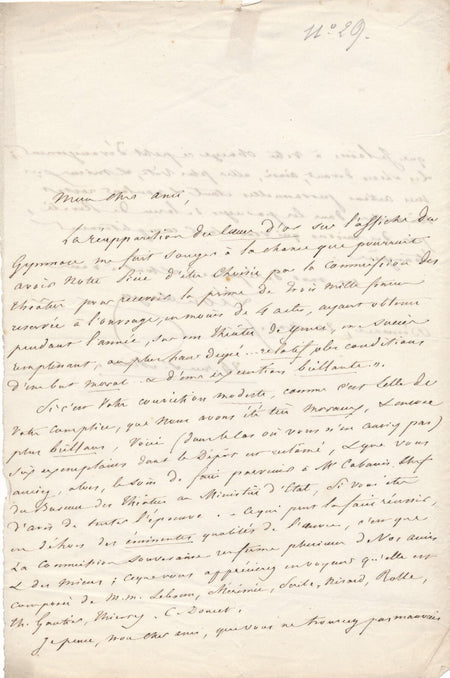 N° 29.
Mon cher ami,
La réapparition du Cœur d'or sur l'affiche du
Gymnase me fait songer à la chance que pourrait
avoir Notre Pièce d'être choisie par la Commission des
théâtres pour recevoir la prime de trois mille francs
réservée à l'ouvrage, en moins de 4 actes, ayant obtenu
pendant l'année, sur un théâtre de genre, un succès
remplissant, au plus haut degré relatif, les conditions
d'un but moral & d'une exécution brillante ».
Si c'est votre conviction modeste, comme c'est celle de
votre complice, que nous avons été très moraux, & encore
plus brillans, voici (dans le cas où vous n'en auriez pas)
six exemplaires dont le Dépôt est réclamé, & que vous
auriez, alors, le soin de faire parvenir à Mr Cabanis, chef
du Bureau des théâtres au Ministère d'État, si vous êtes
d'avis de tenter l'épreuve. - Ce qui peut la faire réussir,
en dehors des éminentes qualités de l'œuvre, c'est que
la Commission Souveraine renferme plusieurs de Vos amis
& des miens; ce que vous apprécierez en voyant qu'elle est
composée de M.M. Lebrun, Mérimée, Scribe, Nisard, Rolle,
Th. Gautier, Thierry, C. Doucet.
Je pense, mon cher ami, que vous ne trouverez pas mauvais